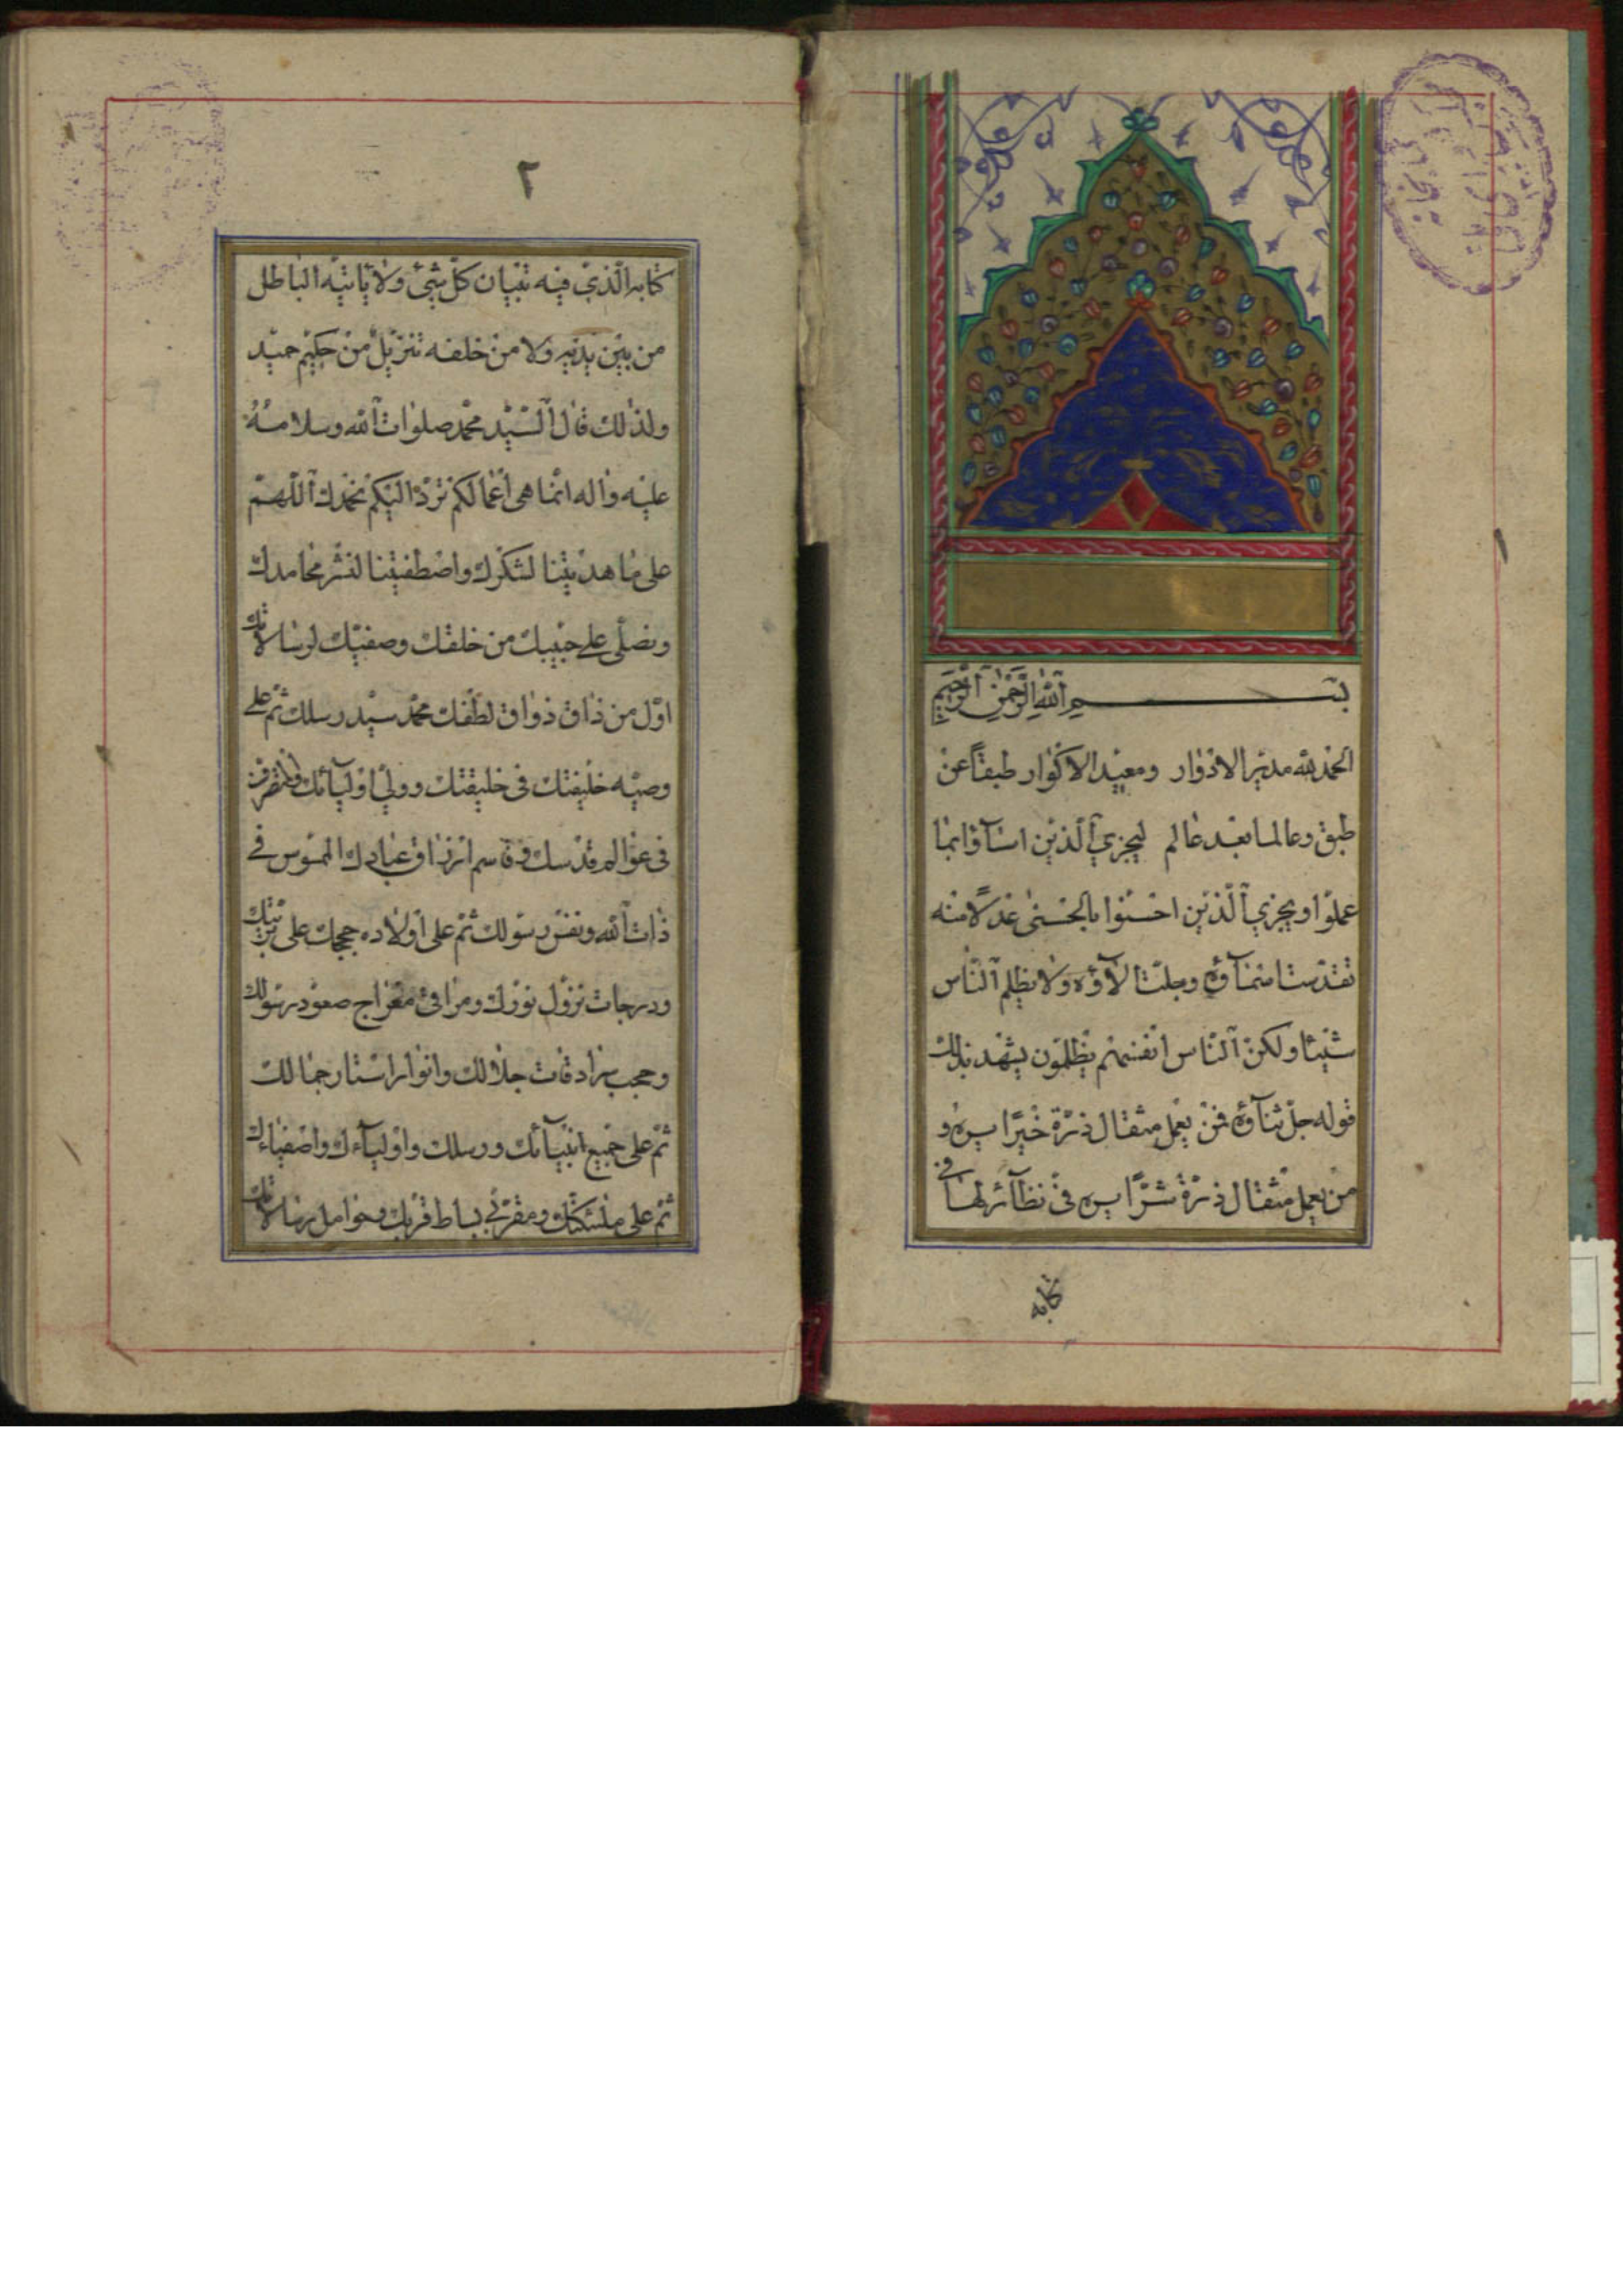 بسم الله الرحمن الرحيم
الحمد لله مدير الادوار ومعيد الاكوار طبقاً عن
طبق وعالما بعد عالم ليجزي الذين اساؤا بما
عملوا ويجزي الذين احسنوا بالحسنى عدلاً منه
تقدست اسمآؤه وجلت الآؤه ولا يظلم الناس
شيئا ولكن الناس انفسهم يظلمون يشهد بذلك
قوله جل ثنآؤه فمن يعمل مثقال ذرة خيرًا يره و
من يعمل مثقال ذرة شرًّا يره في نظآئر لها في
كتابه
٢
كتابه الذي فيه تبيان كل شيئ ولا يأتيه الباطل
من بين يديه ولا من خلفه تنزيل من حكيم حميد
ولذلك قال السيد محمد صلوات الله وسلامه
عليه واله انما هي اعمالكم ترد اليكم نحمدك اللهم
على ما هديتنا لشكرك واصطفيتنا لنشر محامدك
ونصلي على حبيبك من خلقك وصفيك لرسالاتك
اول من ذاق ذواق لطفك محمد سيد رسلك ثم على
وصيه خليفتك في خليقتك وولي اوليآئك والمتصرف
في عوالم قدسك وقاسم ارزاق عبادك الممسوس في
ذات الله ونفس رسولك ثم على اولاده حججك على بريتك
ودرجات نزول نورك ومراقي معراج صعود رسولك
وحجب سرادقات جلالك وانوار استار جمالك
ثم على جميع انبيآئك ورسلك واوليآءك واصفيآءك
ثم على ملئكتك ومقربي بساط قربك وحوامل رسالاتك